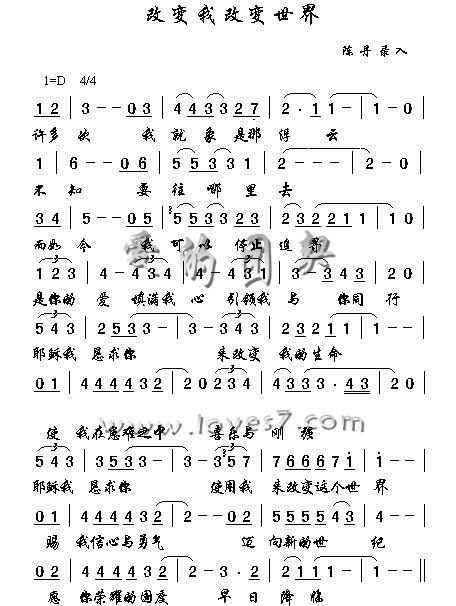 改变我改变世界
陈丹录入
1=D 4/4
1 2 | 3 - - 0 3 | 4 4 3 3 2 7 | 2 · 1 1 - | 1 -
许多次 我就象是那浮云
1 | 6 - - 0 6 | 5 5 5 3 3 1 | 2 - - - | 2 - -
不知 要往哪里去
3 4 | 5 - - 0 5 | 5 5 5 3 3 1 | 2 3 2 2 1 1 | 1 0
而如今 我可以停止追寻
爱的团契
1 2 3 | 4 - 4 3 4 | 4 3 1 2 1 2 3 | 3 - 3 4 3 | 2 0
是你的爱 填满我心 引领我与 你同行
5 4 3 | 2 5 5 3 3 - | 3 5 4 3 | 2 1 5 3 1 2 | 2 -
耶稣我恳求你 来改变 我的生命
0 1 | 4 4 4 4 3 2 | 2 - 2 0 2 3 4 | 4 3 3 3 3 · 4 3 | 2 0
www.loves7.com
使 我在患难之中 喜乐与刚强
5 4 3 | 2 5 3 5 3 3 - | 3 - 3 5 7 | 7 6 6 6 7 i | i -
耶稣我恳求你 使用我 来改变这个世界
0 1 | 4 4 4 4 3 2 | 2 - - 0 2 | 5 5 5 5 4 3 | 3 -
赐 我信心与勇气 迈向新的世纪
0 1 | 4 4 4 4 3 2 | 2 - 1 2 | 2 - 1 1 | 1 - - ‖
愿 你荣耀的国度 早日降临